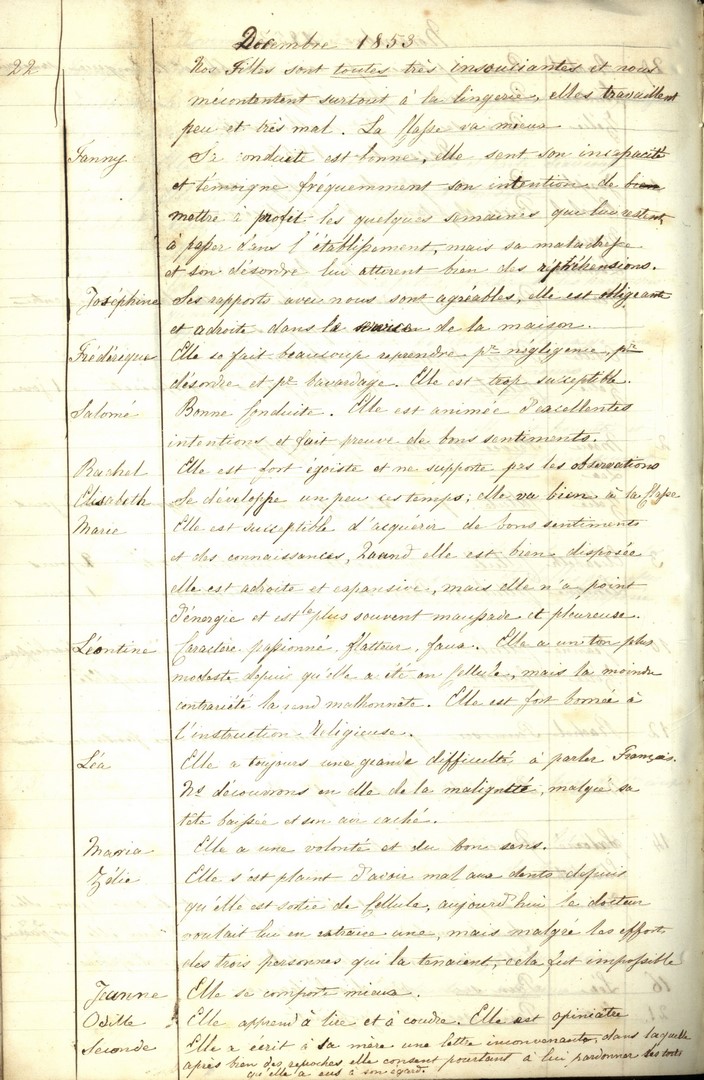 Décembre 1853
22 Nos Filles sont toutes très insouciantes et nous
mécontentent surtout à la lingerie, elles travaillent
peu et très mal. La Classe va mieux
Fanny Sa conduite est bonne, elle sent son incapacité
et témoigne fréquemment son intention de bien
mettre à profit les quelques semaines qui lui restent
à passer dans l'établissement, mais sa maladresse
et son désordre lui attirent bien des répréhensions.
Joséphine Ses rapports avec nous sont agréables, elle est obligeante
et adroite dans le service de la maison.
Frédérique Elle se fait beaucoup reprendre pr négligence, pr
désordre et pr bavardage. Elle est trop susceptible.
Salomé Bonne Conduite. Elle est animée d'excellentes
intentions et fait preuve de bons sentiments.
Rachel Elle est fort égoïste et ne supporte pas les observations
Elisabeth Se développe un peu ces temps; elle va bien à la Classe
Marie Elle est susceptible d'acquérir de bons sentiments
et des connaissances, Quand elle est bien disposée
elle est adroite et expansive, mais elle n'a point
d'énergie et est le plus souvent maussade et pleureuse.
Léontine Caractère passionné, flatteur, faux. Elle a un ton plus
modeste depuis qu'elle a été en Cellule, mais la moindre
contrariété la rend malhonnête. Elle est fort bornée à
l'instruction Religieuse.
Léa Elle a toujours une grande difficulté à parler Français.
Ns découvrons en elle de la malignité, malgré sa
tête baissée et son air caché.
Maria Elle a une volonté et du bon sens.
Zélie Elle s'est plaint d'avoir mal aux dents depuis
qu'elle est sortie de Cellule, aujourd'hui le docteur
voulait lui en extraire une, mais malgré les efforts
des trois personnes qui la tenaient, cela fut impossible
Jeanne Elle se comporte mieux.
Odille Elle apprend à lire et à coudre. Elle est opiniâtre
Seconde Elle a écrit à sa mère une lettre inconvenante, dans laquelle
après bien des reproches elle consent pourtant à lui pardonner les torts
qu'elle a eus à son égard.